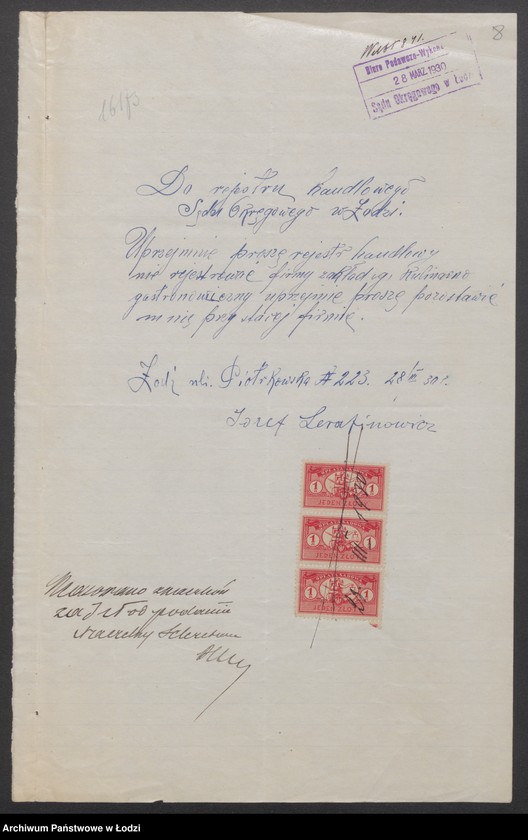 8
Biuro Podawczo-Wykon
28 MARZ. 1930
Sądu Okręgowego w Łodzi
Do rejestru handlowego
Sądu Okręgowego w Łodzi.
Uprzejmie proszę rejestr handlowy
nie rejestrować firmy zakład g. Kulinarno
gastronomiczny uprzejmie proszę pozostawić
mnię przy starej firmie.
Łodź ul. Piotrkowska № 223. 28/III 30 r.
Jozef Serafinowicz
1 1
1 1
1 1
Skasowano znaczków
za 3 zł od podania
Naczelny Sekretarz
Archiwum Państwowe w Łodzi